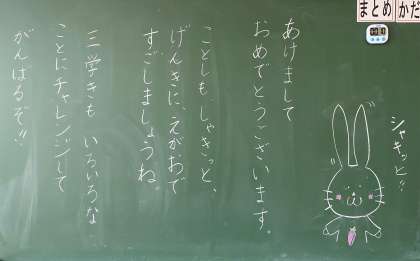 まとめ
かだ
シャキッと!!
あけまして
おめでとうございます。
ことしも、しゃきっと、
げんきに、えがおで
すごしましょうね。
三学きも いろいろな
ことにチャレンジして
がんばるぞ!!